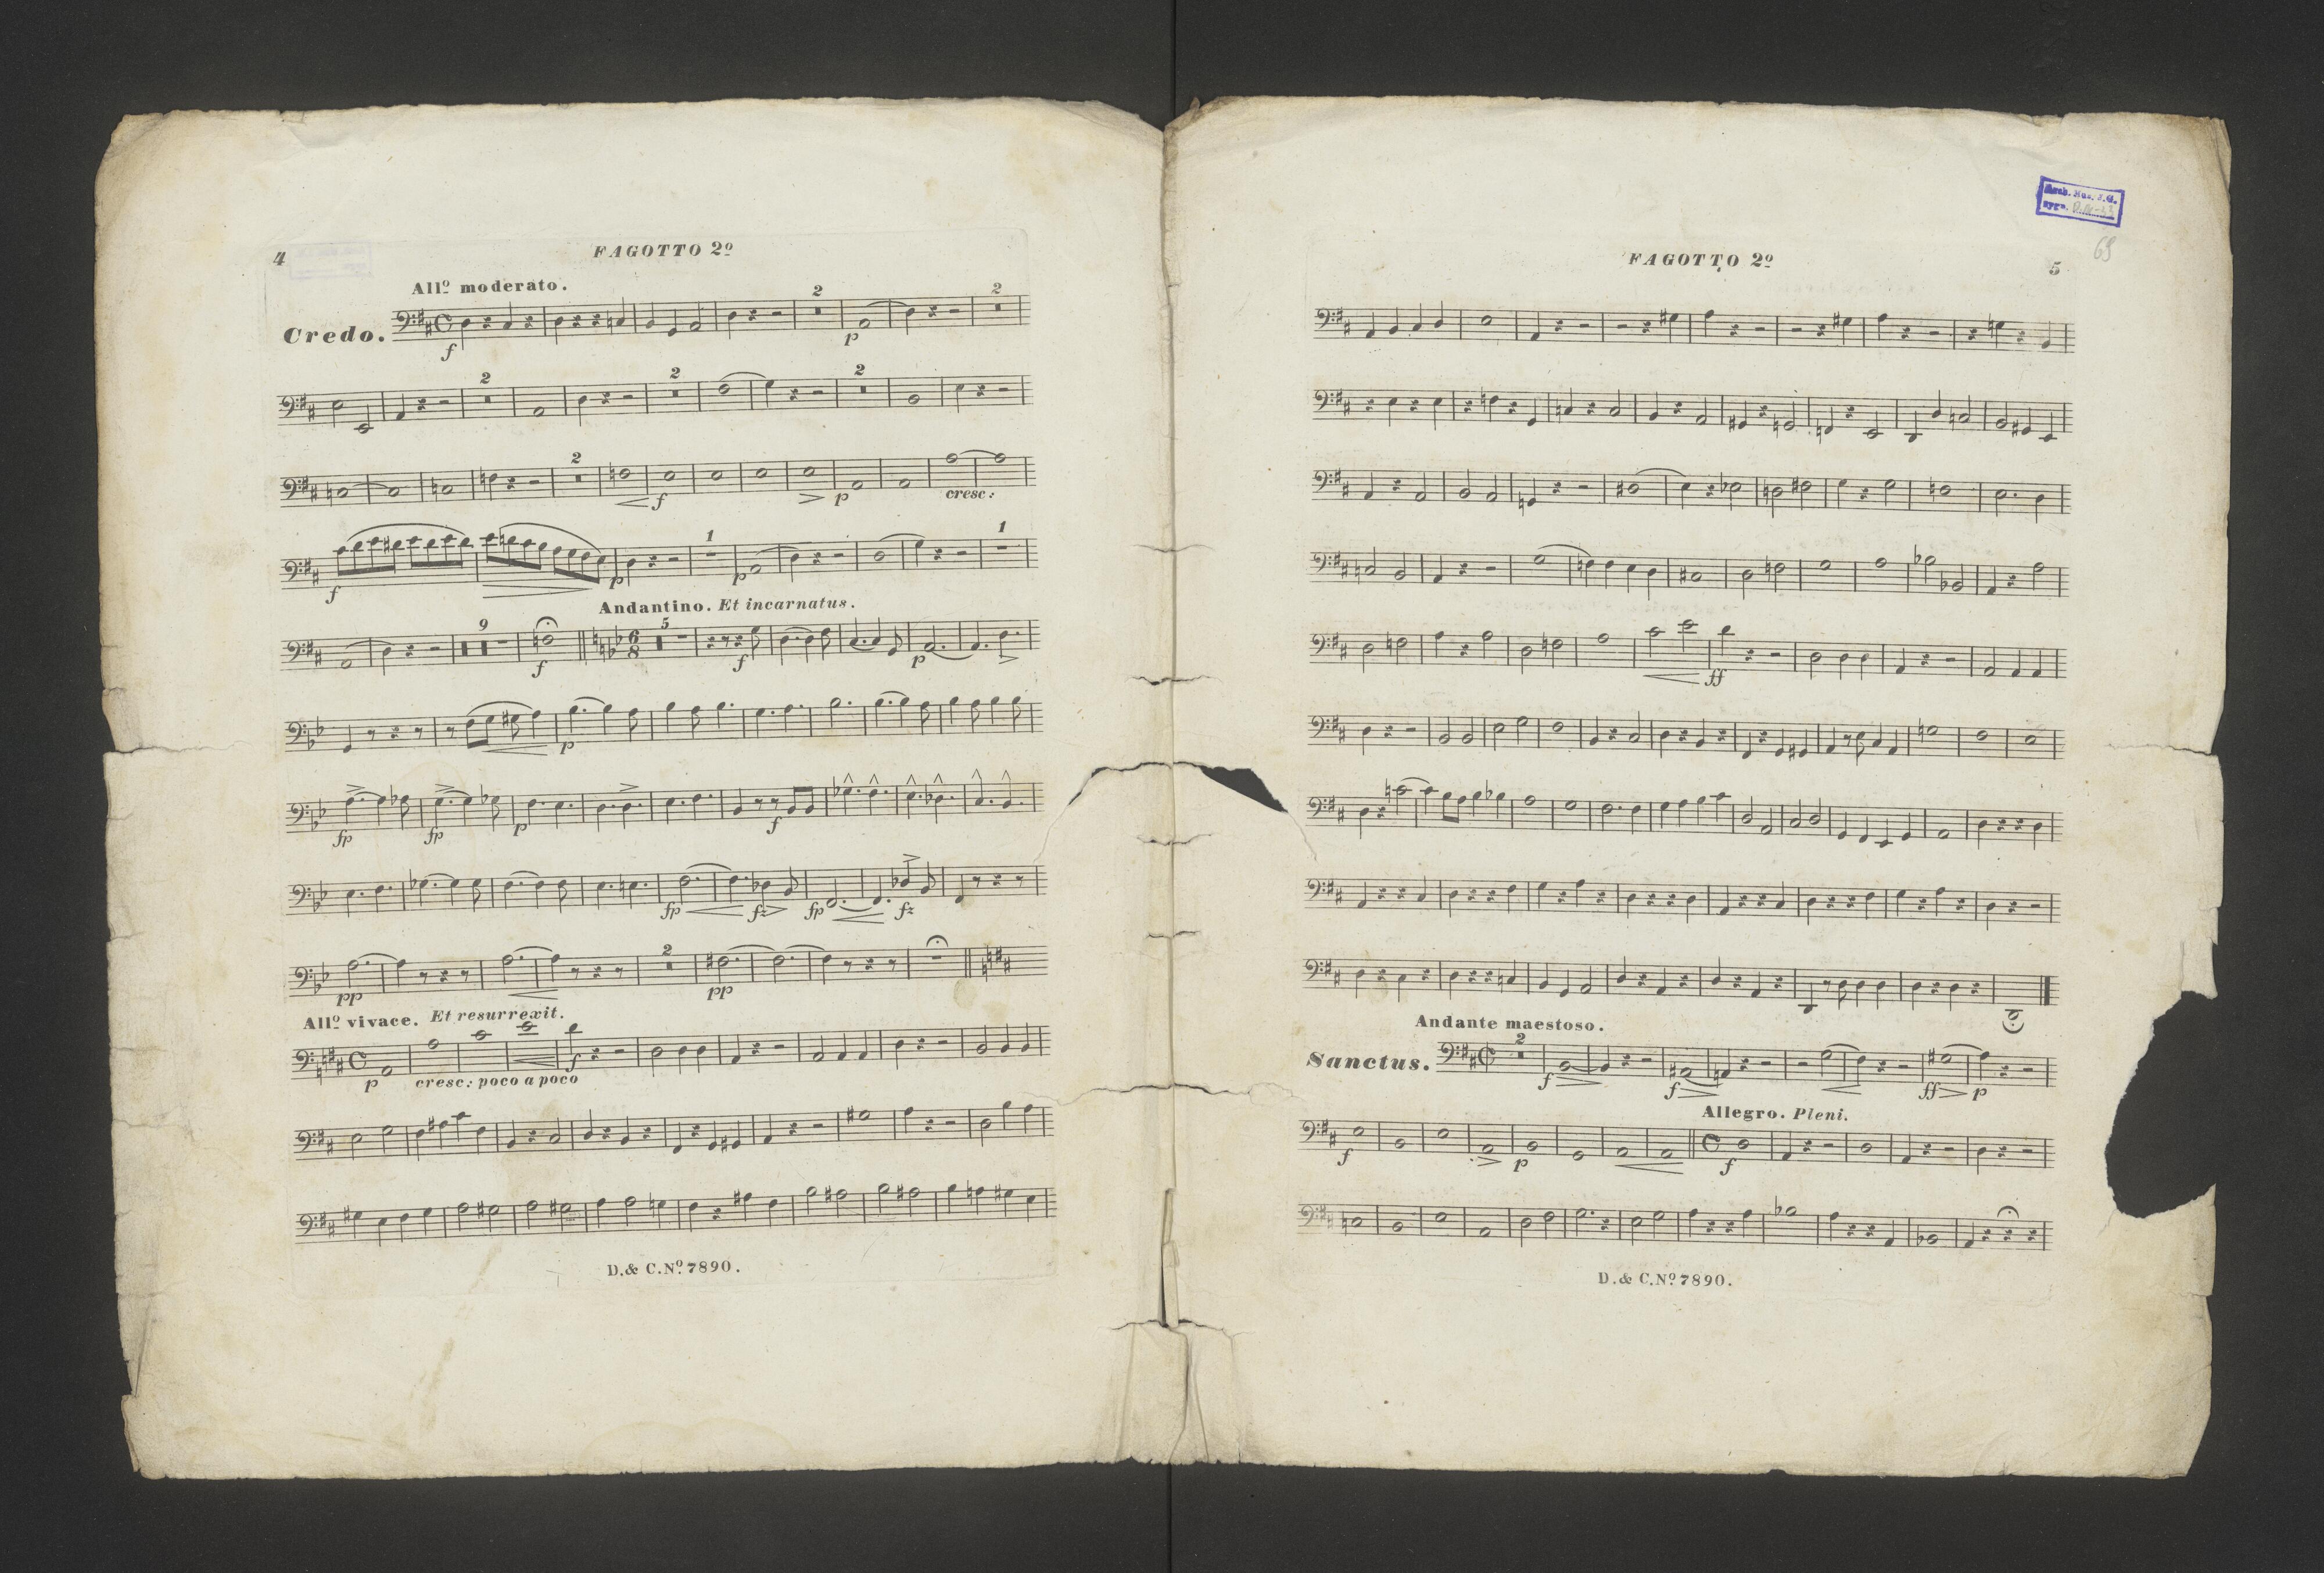 4
FAGOTTO 2º
Allº moderato.
Credo.
2
2
f
p
2
2
2
2
f
p
cresc:
1
1
f
p
p
Andantino. Et incarnatus.
9
5
6
8
f
f
p
p
fp
fp
p
f
fp
fz
fp
fz
2
pp
pp
Allº vivace. Et resurrexit.
p
cresc: poco a poco
f
D.& C.Nº 7890.
Arch. Mus. J.G.
sygn.
69
FAGOTTO 2º
5
ff
Andante maestoso.
Sanctus.
2
f
f
ff
p
Allegro. Pleni.
f
p
f
D.& C.Nº 7890.